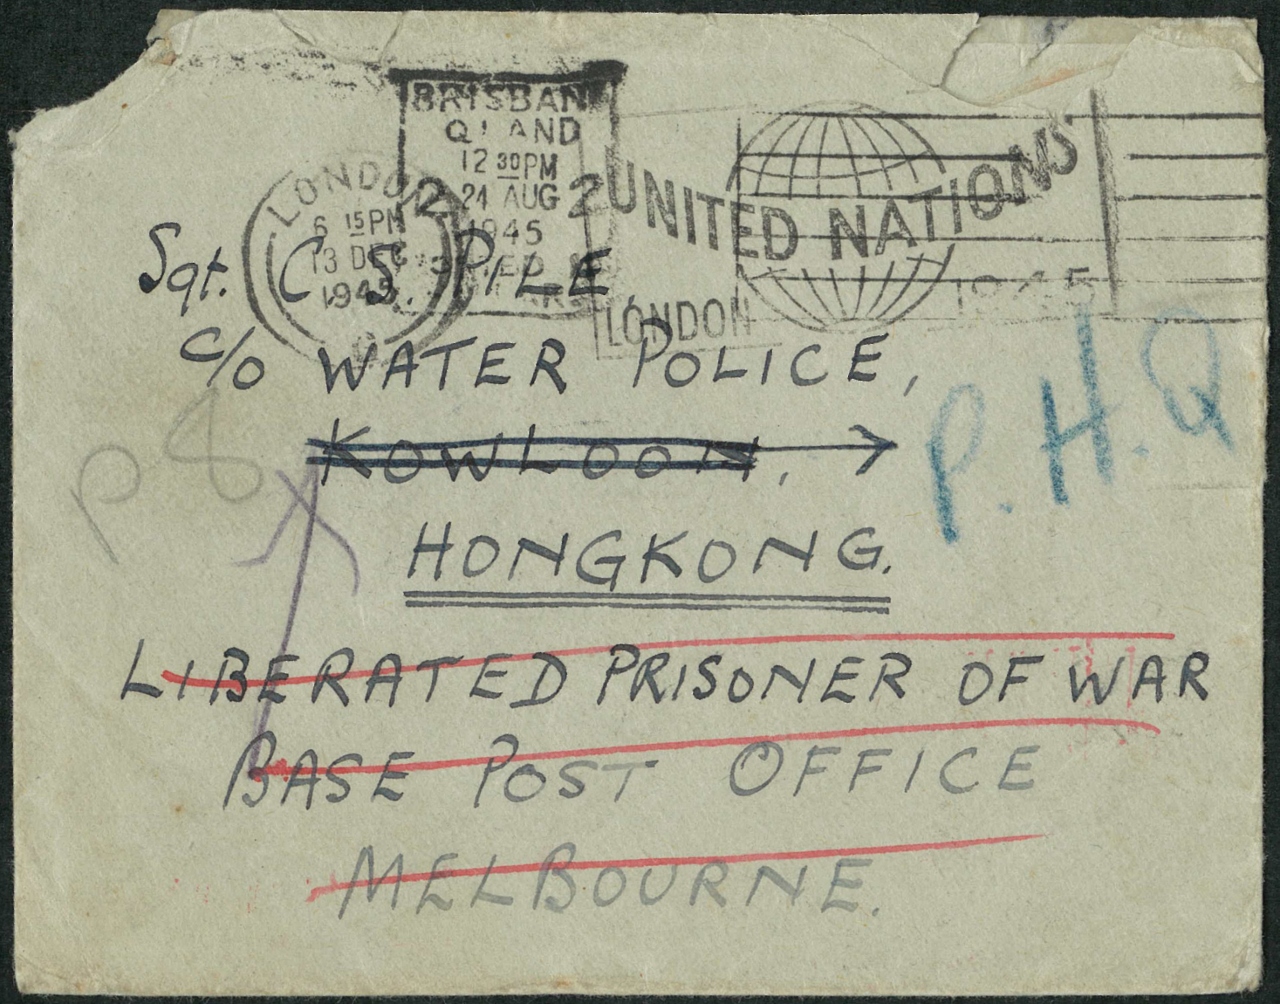 BRISBANE
QLAND
12 30PM
24 AUG
1945
2 2
LONDON
6 15PM
13 DEC
1945
UNITED NATIONS
LONDON
1945
Sgt. C. S. PILE
c/o WATER POLICE,
KOWLOON,
HONGKONG.
P.H.Q
P 8
LIBERATED PRISONER OF WAR
BASE POST OFFICE
MELBOURNE.